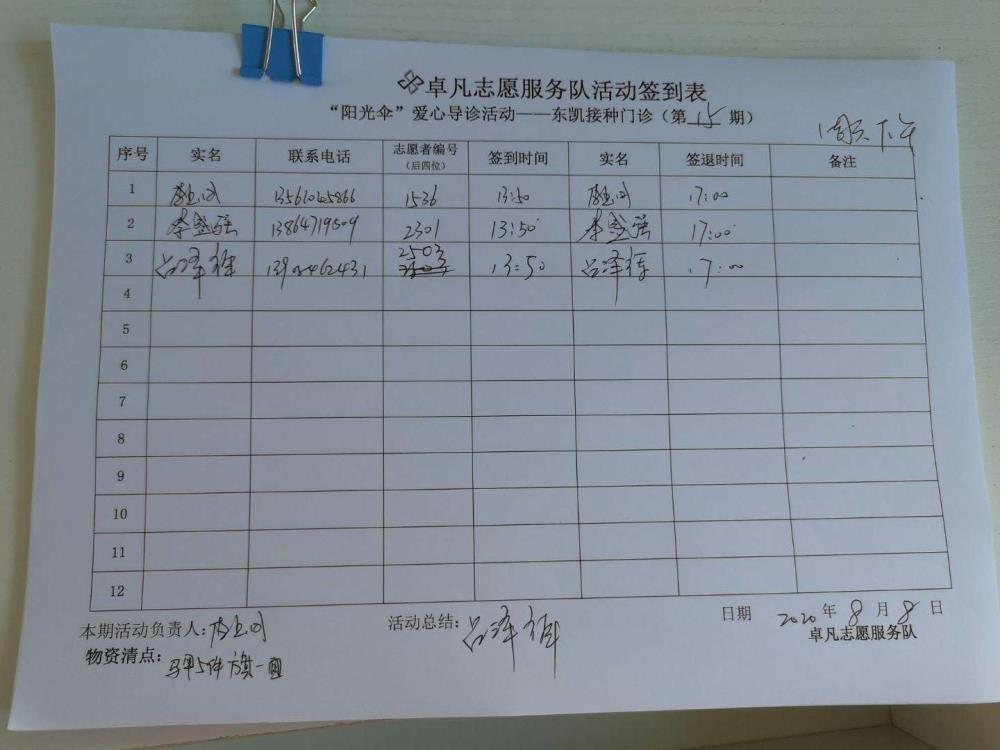 卓凡志愿服务队活动签到表
“阳光伞”爱心导诊活动——东凯接种门诊（第 15 期）
下午
序号 实名 联系电话 志愿者编号（后四位） 签到时间 实名 签退时间 备注
1 1536 13:50 17:00
2 李盛强 13864719509 2301 13:50 李盛强 17:00
3 吕泽 2503 13:50 吕泽 17:00
4
5
6
7
8
9
10
11
12
本期活动负责人: 活动总结: 吕泽 日期 2020 年 8 月 8 日
卓凡志愿服务队
物资清点: 马甲5件 旗一面